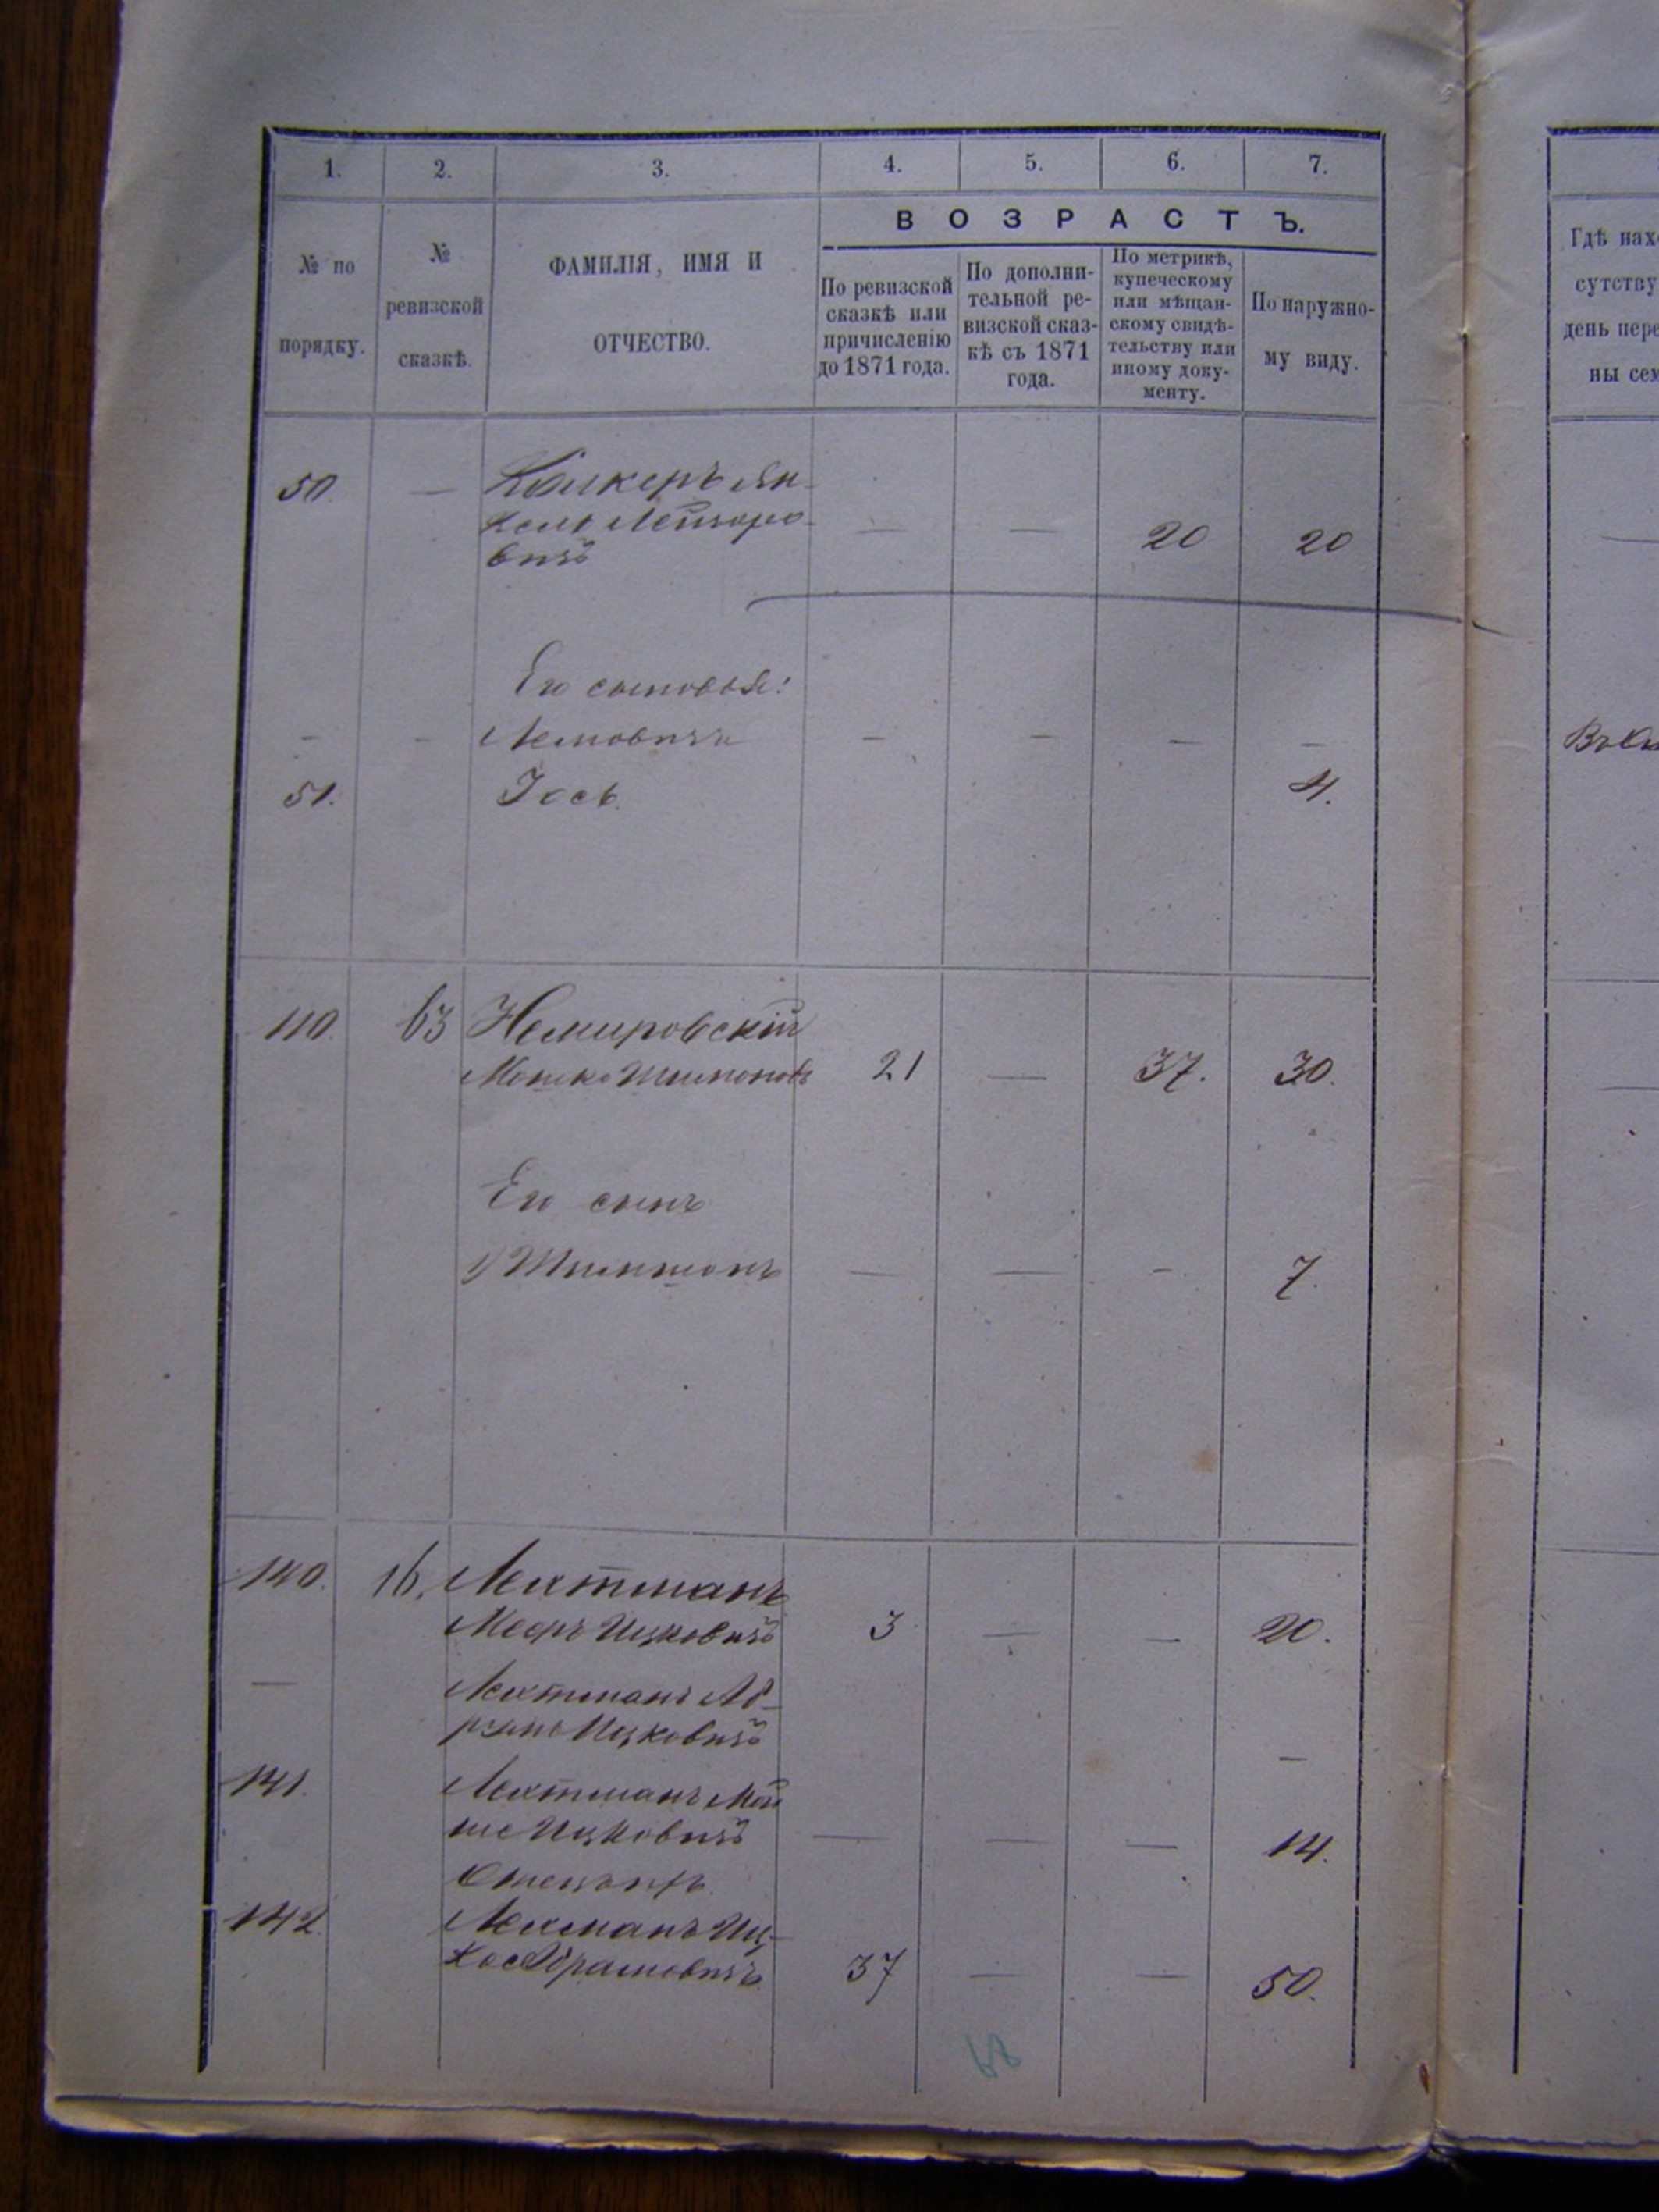 1. 2. 3. 4. 5. 6. 7.
ВОЗРАСТЪ.
№ по порядку.
№ ревизской сказкѣ.
ФАМИЛІЯ, ИМЯ И ОТЧЕСТВО.
По ревизской сказкѣ или причисленію до 1871 года.
По дополнительной ревизской сказкѣ съ 1871 года.
По метрикѣ, купеческому или мѣщанскому свидѣтельству или иному документу.
По наружному виду.
Гдѣ нахо
сутству
день пере
ны сем
50. —
кель Лейзоро- — — 20 20
вичъ
Его сыновья:
— — — — — — Въ
51. Іось. 4.
110. 63 Немировскій
Мошко Шимонов 21 — 37. 30.
Его сынъ
1) Шимшонъ — — — 7.
140. 16. Лехтманъ
Мееръ Ицковичъ 3 — — 20.
— Лехтманъ Аб-
Ицковичъ —
141. Лехтманъ Мой
ше Ицковичъ — — — 14.
142. Лехманъ Иц-
Абрамовичъ 37 — — 50.